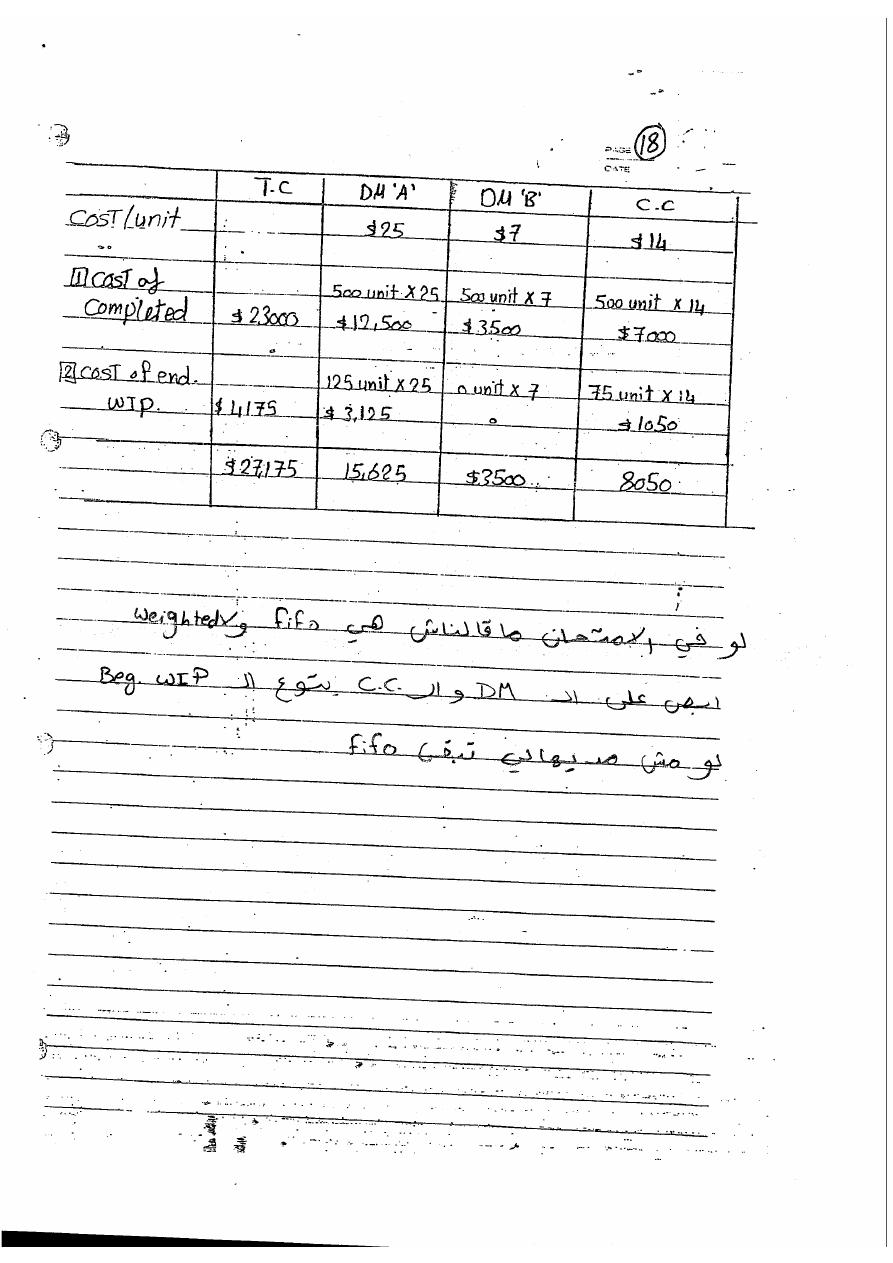 PAGE 18
DATE
T.C DM 'A' DM 'B' C.C
Cost/unit $25 $7 $14
..
1 Cost of 500 unit X 25 500 unit X 7 500 unit X 14
Completed $23000 $12,500 $3500 $7000
2 Cost of end. 125 unit X 25 0 unit X 7 75 unit X 14
WIP. $4175 $3,125 0 $1050
$27,175 15,625 $3500 8050
لو في الامتحان ماقالناش هي fifo ولا weighted
ابص على الـ DM والـ C.C بتوع الـ Beg. WIP
لو مش مديهالي تبقى fifo